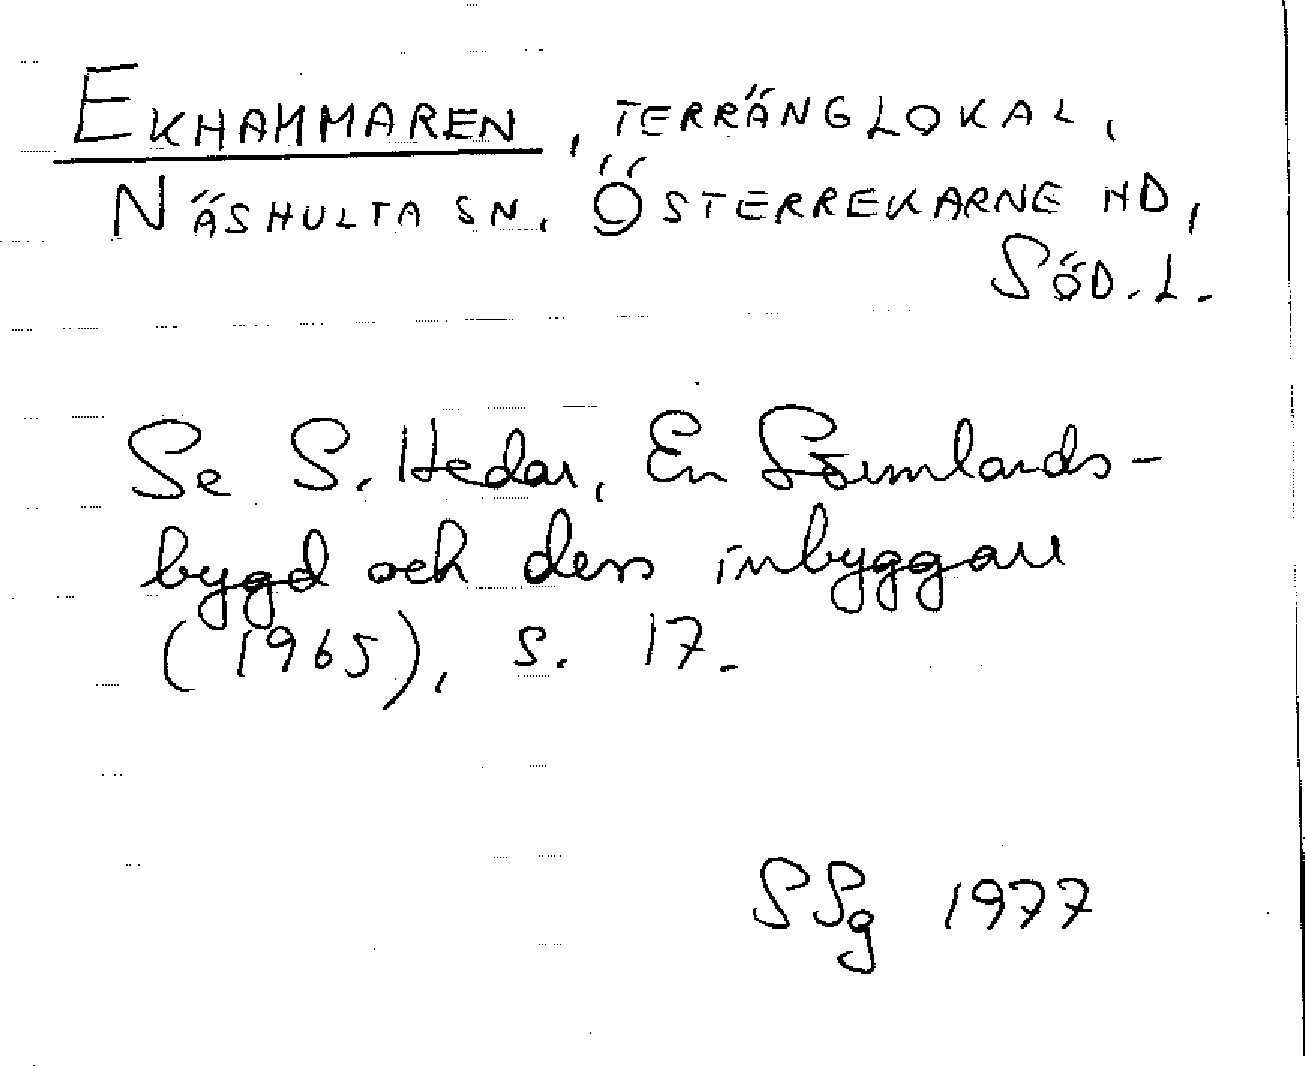 EKHAMMAREN, TERRÄNGLOKAL,
NÄSHULTA SN, ÖSTERREKARNE HD,
SÖD. L.
Se S. Hedar, En Sörmlands-
bygd och dess inbyggare
(1965), s. 17.
SSg 1977